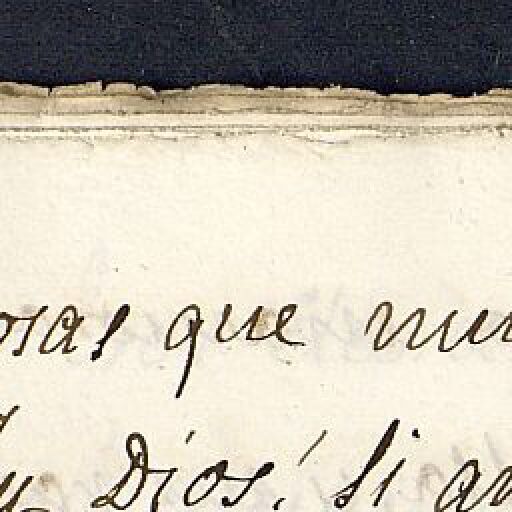 osas que nun
y Dios! Si an